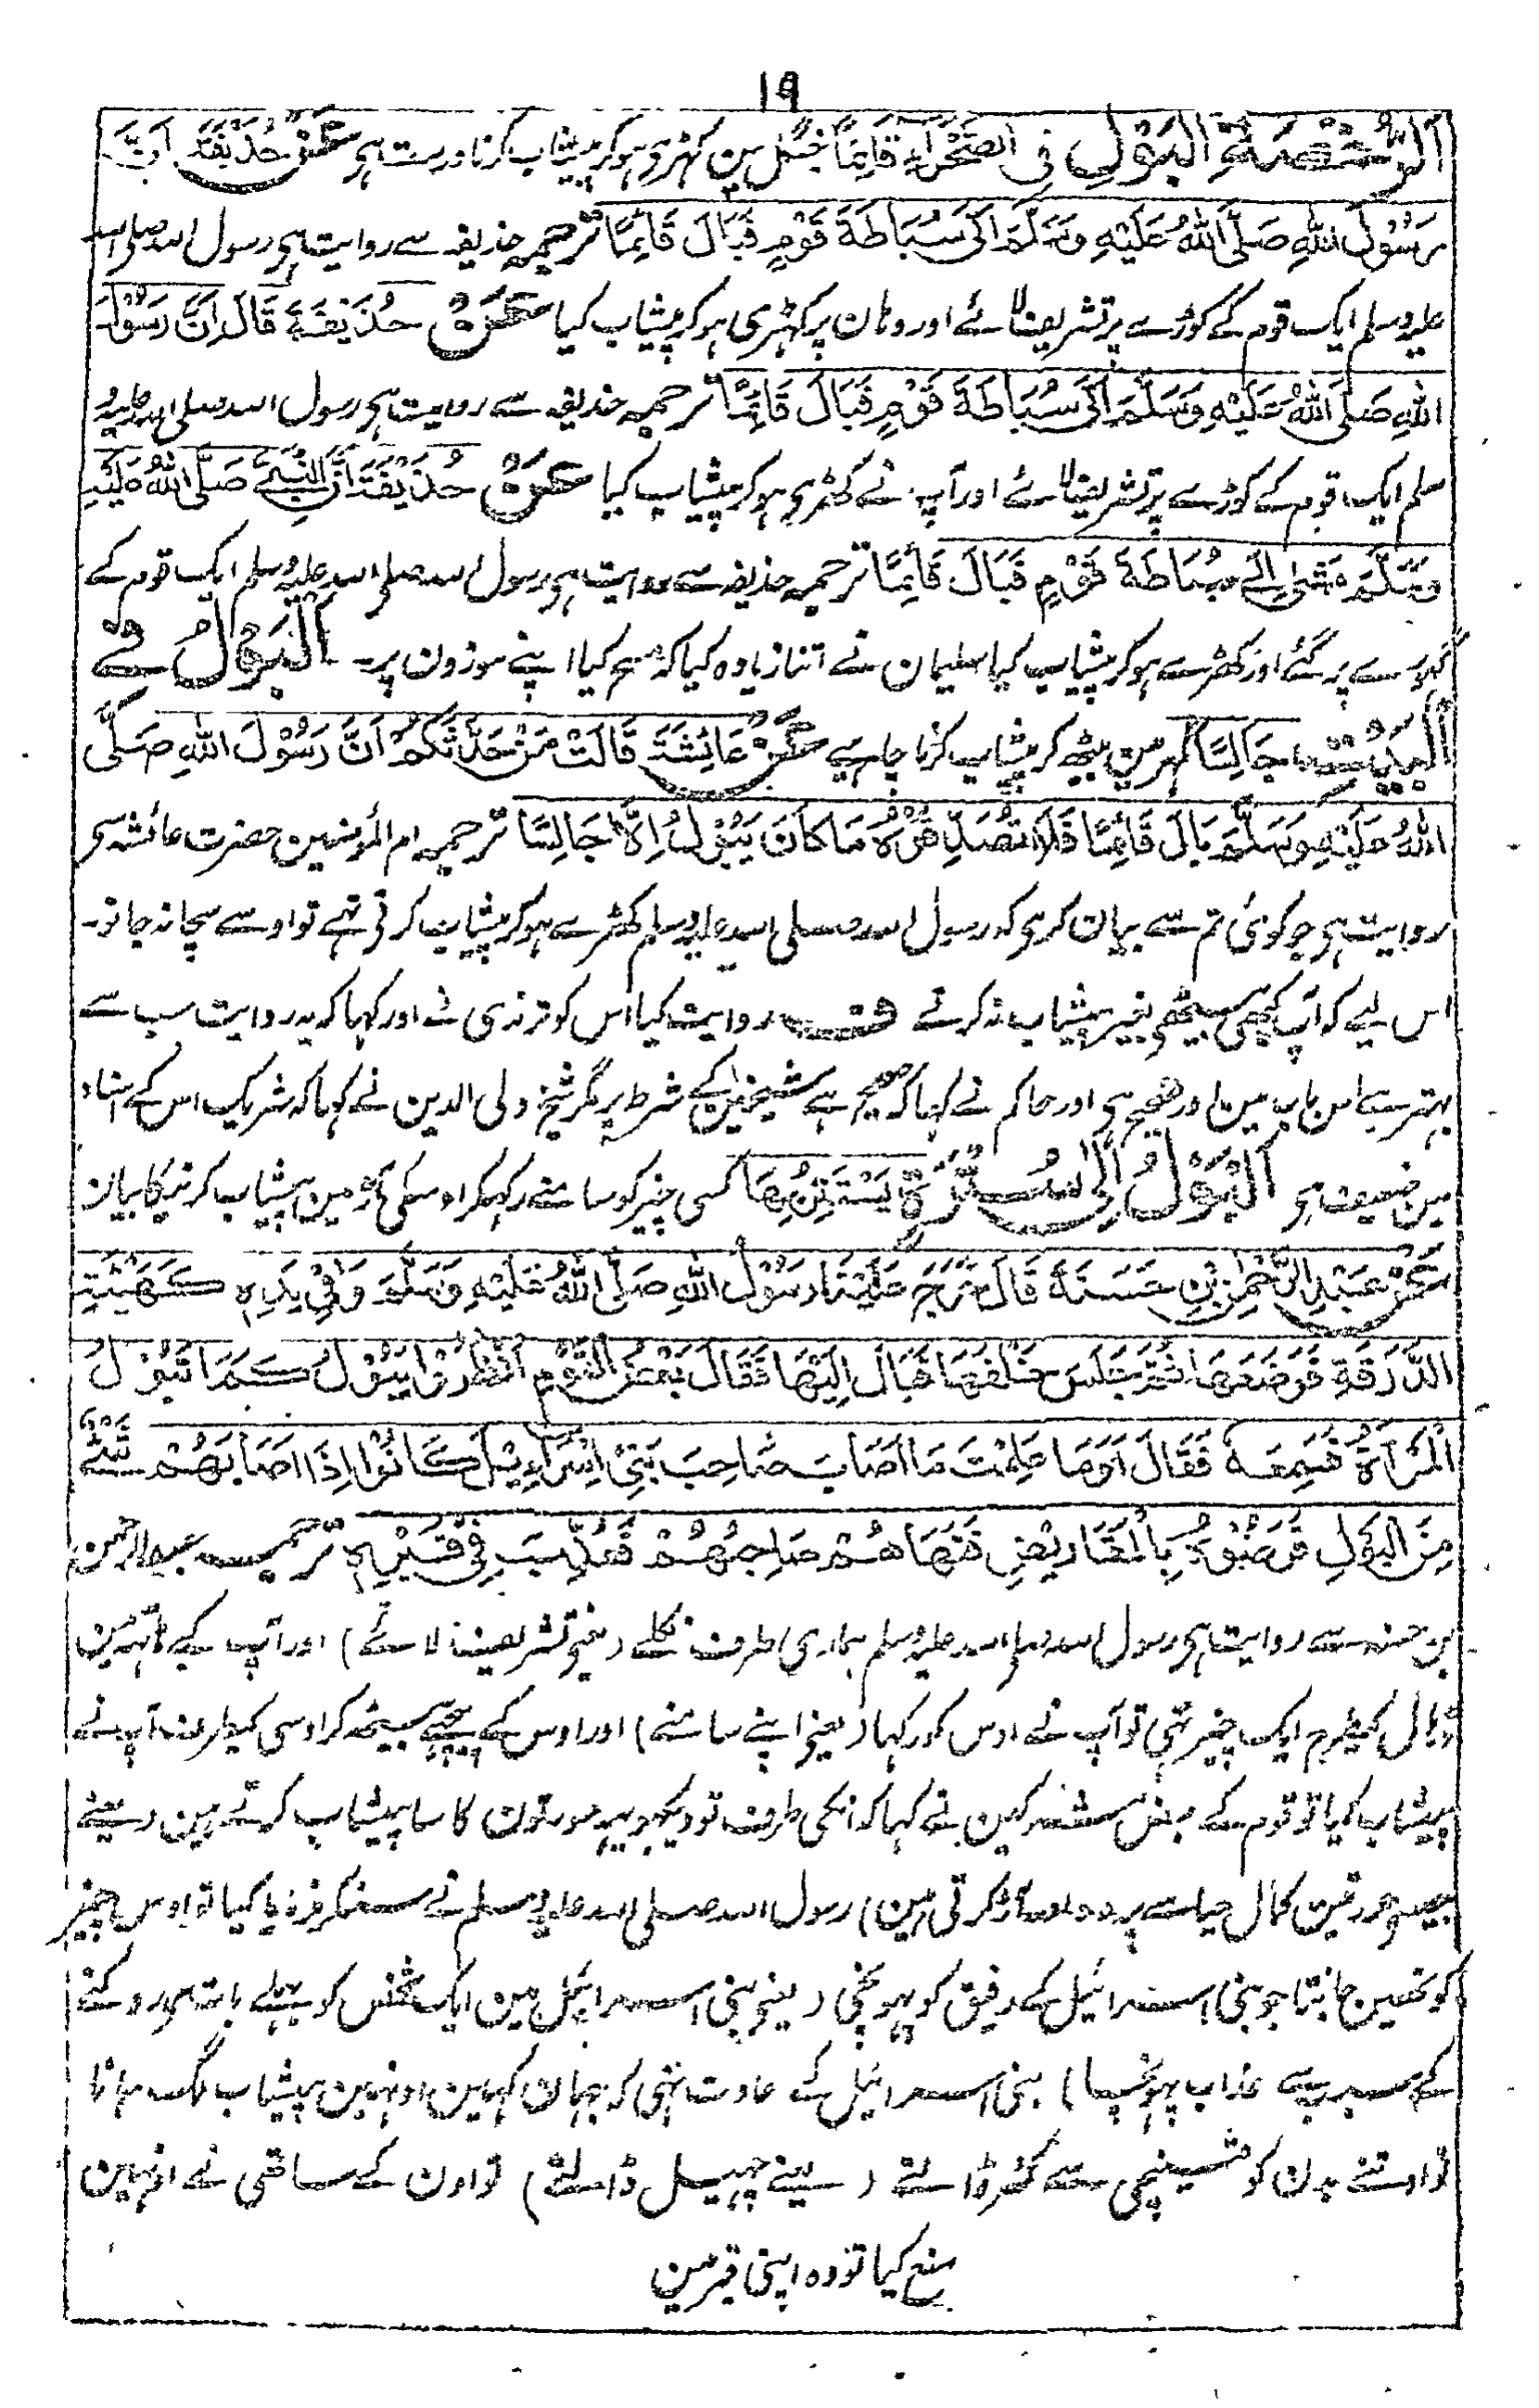 ١٩
اَلرُّخْصَةُ الْبَوْلِ فِی الصَّحْرَاءِ قَائِمًا جنگل مین کہڑی ہو کر پیشاب کرنا درست ہی عَنْ حُذَیْفَةَ اَنَّ
رَسُوْلَ اللهِ صَلَّى اللهُ عَلَيْهِ وَسَلَّمَ اَتَى سُبَاطَةَ قَوْمٍ فَبَالَ قَائِمًا ترجمہ حذیفہ سے روایت ہی رسول اللہ صلی اللہ
علیہ وسلم ایک قوم کے کوڑے پر تشریف لائے اور وہان پر کہڑی ہو کر پیشاب کیا عَنْ حُذَيْفَةَ قَالَ اِنَّ رَسُوْلَ
اللهِ صَلَّى اللهُ عَلَيْهِ وَسَلَّمَ اَتَى سُبَاطَةَ قَوْمٍ فَبَالَ قَائِمًا ترجمہ حذیفہ سے روایت ہی رسول اللہ صلی اللہ علیہ و
سلم ایک قوم کے کوڑے پر تشریف لائے اور آپ نے کھڑی ہو کر پیشاب کیا عَنْ حُذَيْفَةَ اَنَّ النَّبِیَّ صَلَّى اللهُ عَلَيْهِ
وَسَلَّمَ مَشٰى اِلٰى سُبَاطَةَ قَوْمٍ فَبَالَ قَائِمًا ترجمہ حذیفہ سے روایت ہی رسول اللہ صلی اللہ علیہ وسلم ایک قوم کے
گہورے پر گئے اور کھڑے ہو کر پیشاب کیا سلیمان نے اتنا زیادہ کیا کہ مسح کیا اپنے موزون پر۔ اَلْبَوْلُ فِی
الْبَيْتِ جَالِسًا گہر مین بیٹھ کر پیشاب کرنا چاہیے عَنْ عَائِشَةَ قَالَتْ مَنْ حَدَّثَكُمْ اَنَّ رَسُوْلَ اللهِ صَلَّى
اللهُ عَلَيْهِ وَسَلَّمَ بَالَ قَائِمًا فَلَا تُصَدِّقُوْهُ مَا كَانَ يَبُوْلُ اِلَّا جَالِسًا ترجمہ ام المؤمنین حضرت عائشہ سی
روایت ہی جو کوئی تم سے بیان کری کہ رسول اللہ صلی اللہ علیہ وسلم کھڑے ہو کر پیشاب کرتی تہے تو اوسے سچا نہ جانو۔
اس لیے کہ آپ کبھی بیٹھی بغیر پیشاب نہ کرتے ف روایت کیا اس کو ترمذی نے اور کہا کہ یہ روایت سب سے
بہتر ہے اس باب مین اور صحیح ہی اور حاکم نے کہا کہ صحیح ہے شیخین کے شرط پر مگر شیخ ولی الدین نے کہا کہ شریک اس کے اسناد
مین ضعیف ہی اَلْبَوْلُ اِلٰى سُتْرَةٍ يَسْتَتِرُ بِهَا کسی چیز کو سامنے رکہکر اوسکی آڑ مین پیشاب کرنیکا بیان
عَنْ عَبْدِ الرَّحْمٰنِ بْنِ حَسَنَةَ قَالَ خَرَجَ عَلَيْنَا رَسُوْلُ اللهِ صَلَّى اللهُ عَلَيْهِ وَسَلَّمَ وَفِیْ يَدِهٖ كَهَيْئَةِ
الدَّرَقَةِ فَوَضَعَهَا ثُمَّ جَلَسَ خَلْفَهَا فَبَالَ اِلَيْهَا فَقَالَ بَعْضُ الْقَوْمِ اُنْظُرُوْا يَبُوْلُ كَمَا تَبُوْلُ
الْمَرْاَةُ فَسَمِعَهٗ فَقَالَ اَوَمَا عَلِمْتَ مَا اَصَابَ صَاحِبَ بَنِیْ اِسْرَائِيْلَ كَانُوْا اِذَا اَصَابَهُمْ شَیْءٌ
مِنَ الْبَوْلِ قَرَضُوْهُ بِالْمَقَارِيْضِ فَنَهَاهُمْ صَاحِبُهُمْ فَعُذِّبَ فِیْ قَبْرِهٖ ترجمہ عبدالرحمن
بن حسنہ سے روایت ہی رسول اللہ صلی اللہ علیہ وسلم ہماری طرف نکلے (یعنی تشریف لائے) اور آپ کے ہاتہ مین
ڈہال کیطرح ایک چیز تہی تو آپ نے اوس کو رکہا (یعنی اپنے سامنے) اور اوس کے پیچہے بیٹھ کر اوسی کیطرف آپ نے
پیشاب کیا تو قوم کے بعض مشرکین نے کہا کہ انکی طرف تو دیکہو یہہ عورتون کا سا پیشاب کرتے ہین (یعنے
جیسے عورتین کمال حیا سے پردہ اور آڑ کرتی ہین) رسول اللہ صلی اللہ علیہ وسلم نے سنکر فرمایا کیا تو اوس چیز
کو نہین جانتا جو بنی اسرائیل کے رفیق کو پہونچی (یعنی بنی اسرائیل مین ایک شخص کو پہلے بات سے روکنے
کے سبب سے عذاب پہونچا) بنی اسرائیل کے عادت تہی کہ جہان کہین اونہین پیشاب لگ جاتا
تو اوتنے بدن کو قینچی سے کتر ڈالتے (یعنے چہیل ڈالتے) تو اون کے ساتھی نے انہین
منع کیا تو وہ اپنی قبر مین